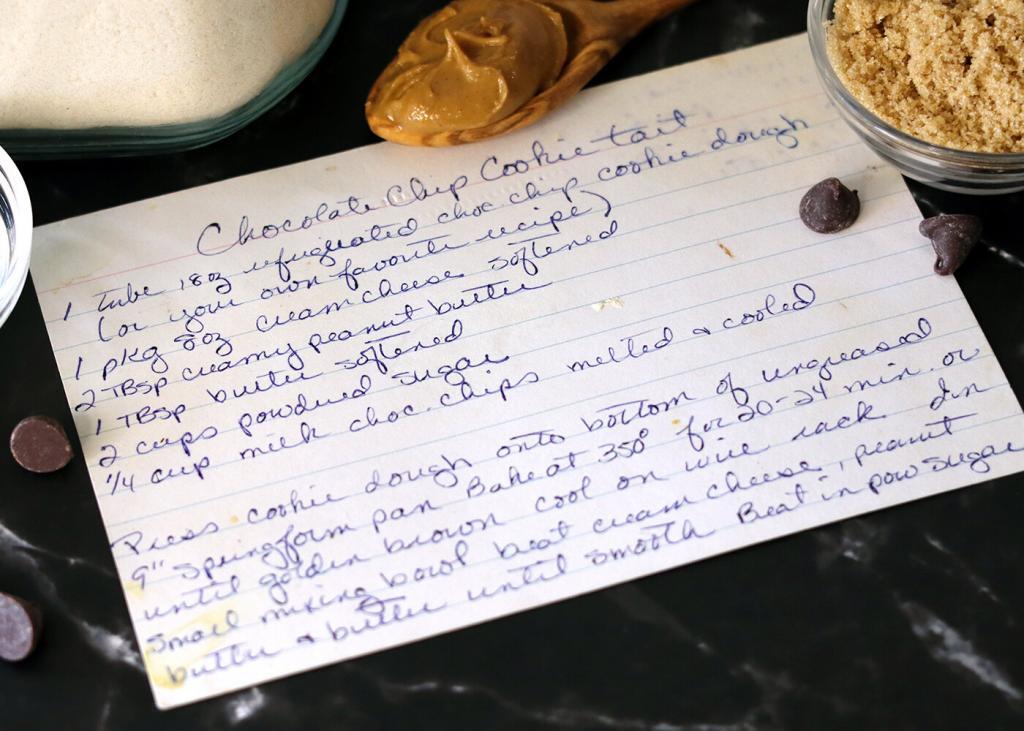 Chocolate Chip Cookie tart
1 tube 18oz refrigerated choc chip cookie dough
(or your own favorite recipe)
1 pkg 8oz cream cheese softened
2 TBSP creamy peanut butter
1 TBSP butter softened
2 cups powdered sugar
1/4 cup milk choc. chips melted & cooled
Press cookie dough onto bottom of ungreased
9" springform pan Bake at 350° for 20-24 min. or
until golden brown cool on wire rack In
small mixing bowl beat cream cheese, peanut
butter & butter until smooth Beat in pow sugar